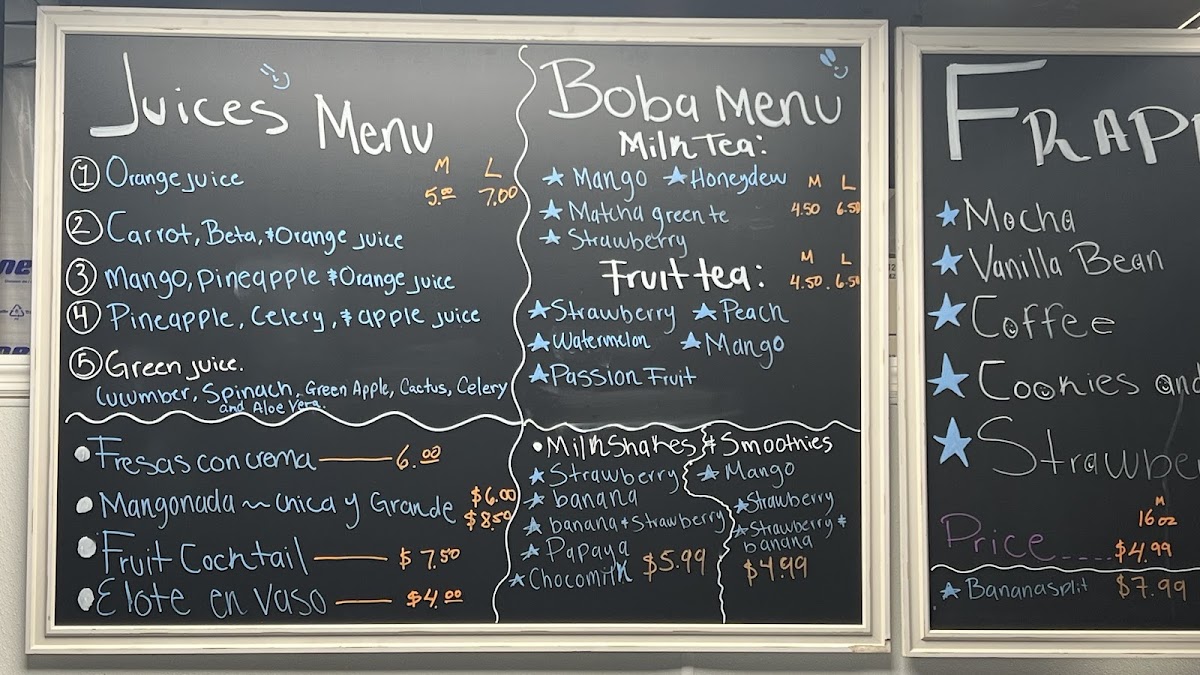 Juices Menu
M L
① Orange juice 5.00 7.00
② Carrot, Beta, & Orange juice
③ Mango, Pineapple & Orange juice
④ Pineapple, Celery, & apple juice
⑤ Green juice.
Cucumber, Spinach, Green Apple, Cactus, Celery
and Aloe Vera.
Fresas con crema 6.00
Mangonada ~ chica y Grande $6.00
$8.50
Fruit Cocktail $7.50
Elote en vaso $4.00
Boba Menu
Milk Tea:
★ Mango ★ Honeydew M L
★ Matcha green te 4.50 6.50
★ Strawberry
Fruit tea: M L
4.50 . 6.50
★ Strawberry ★ Peach
★ Watermelon ★ Mango
★ Passion Fruit
• Milkshakes & Smoothies
★ Strawberry
★ banana
★ banana & Strawberry
★ Papaya
★ Chocomilk $5.99
★ Mango
★ Strawberry
★ Strawberry &
banana
$4.99
FRAP
★ Mocha
★ Vanilla Bean
★ Coffee
★ Cookies and
★ Strawbe
M
16 oz
Price.....$4.99
★ Bananasplit $7.99